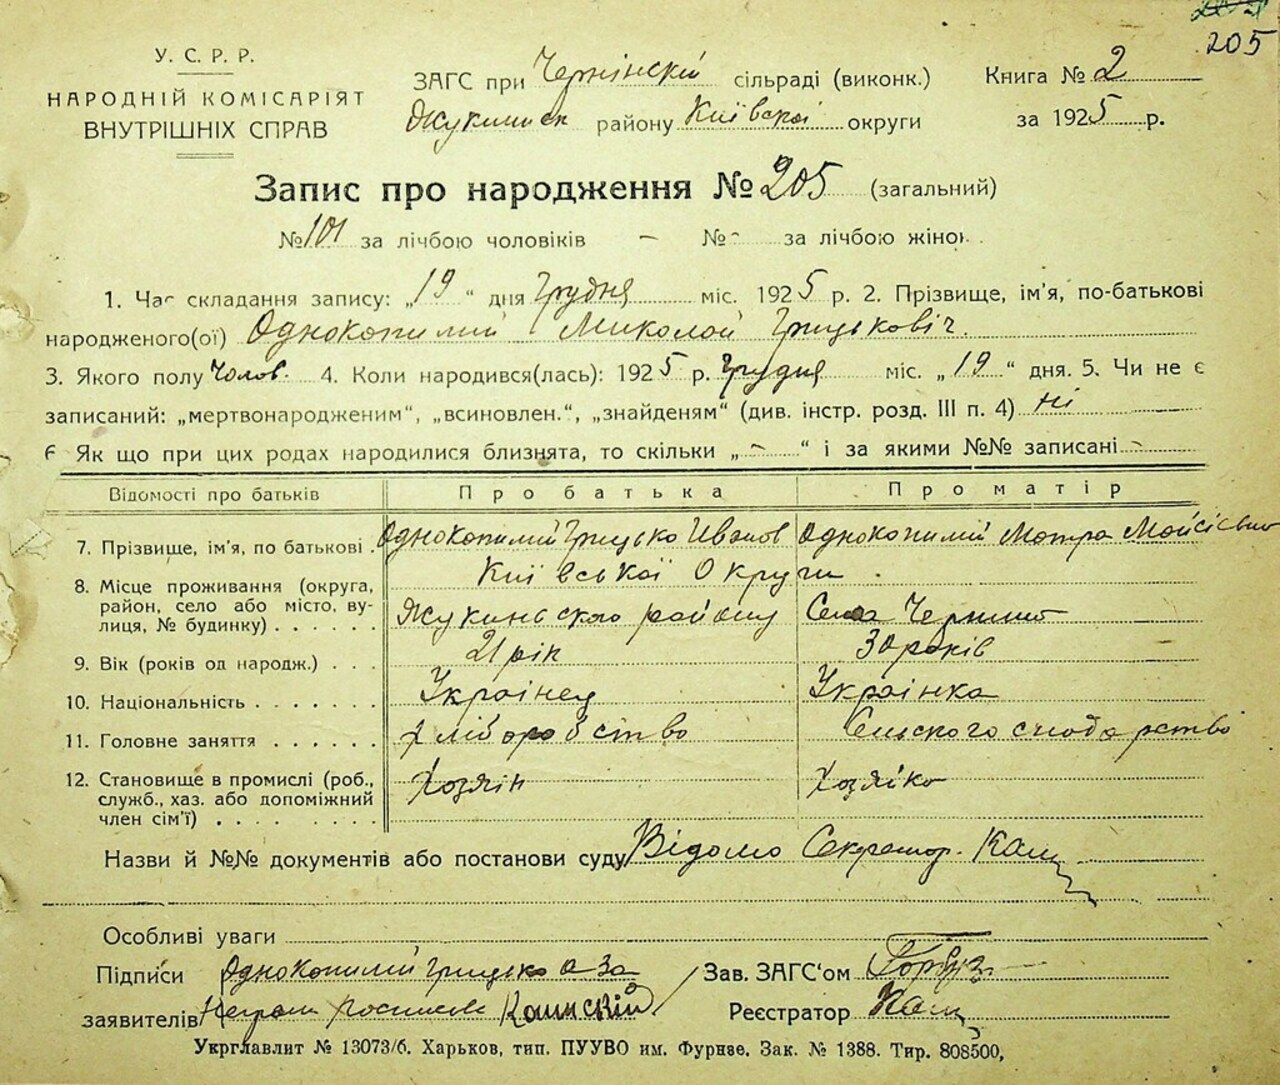 205
У. С. Р. Р.
НАРОДНІЙ КОМІСАРІЯТ
ВНУТРІШНІХ СПРАВ
ЗАГС при Чернінскій сільраді (виконк.)
Жукинск району Київскої округи
Книга № 2
за 1925 р.
Запис про народження № 205 (загальний)
№ 101 за лічбою чоловіків — № - за лічбою жінок.
1. Час складання запису: „19“ дня Грудня міс. 1925 р. 2. Прізвище, ім'я, по-батькові
народженого(ої) Однокопилий Миколой Грицьковіч.
3. Якого полу Чолов. 4. Коли народився(лась): 1925 р. Грудня міс. „19“ дня. 5. Чи не є
записаний: „мертвонародженим“, „всиновлен.“, „знайденям“ (див. інстр. розд. III п. 4) ні
6 Як що при цих родах народилися близнята, то скільки „-“ і за якими №№ записані -
Відомості про батьків Про батька Про матір
7. Прізвище, ім'я, по батькові . Однокопилий Грицько Иванов Однокопилий Мотра Мойсієвно
8. Місце проживання (округа, район, село або місто, вулиця, № будинку) . . . . . . Київської Округи .
Жукинського району Села Чернино
9. Вік (років од народж.) . . . 21 рік 30 років
10. Національність . . . . . . . Українец Українка
11. Головне заняття . . . . . . хліборобство Сильского сподарстві
12. Становище в промислі (роб., служб., хаз. або допоміжний член сім'ї) . . . . . . . Хозяін Хозяйко
Назви й №№ документів або постанови суду Відомо Секретор. Каш
Особливі уваги
Підписи Однокопилий Грицько а за
заявителів Неграм росписля Кашскій
Зав. ЗАГС'ом Горбуз
Реєстратор Каш
Укрглавлит № 13073/6. Харьков, тип. ПУУВО им. Фурнзе. Зак. № 1388. Тир. 808500,